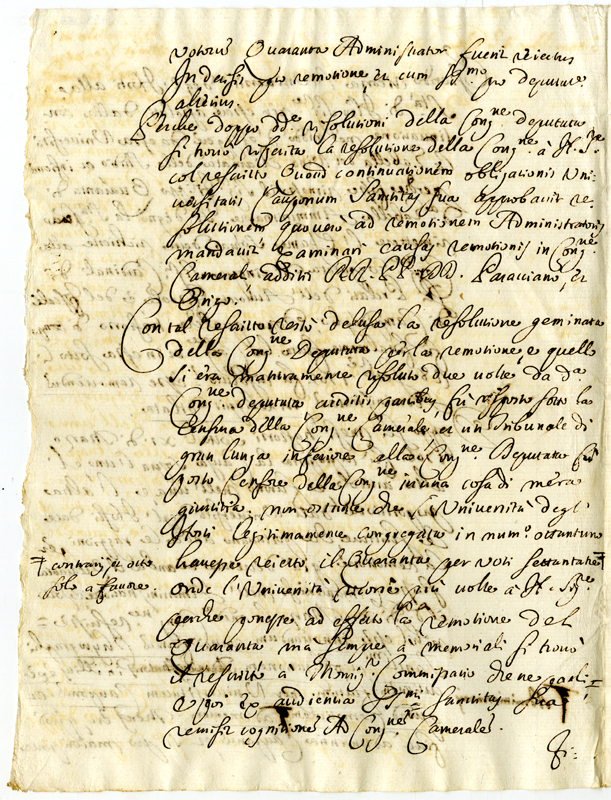 votoris Quaranta Administrator fuerit reiectus
In decisis pro remotione et cum SS.mo pro deputare
alterius.
Perche doppo dd.e resolutioni della Cong.ne deputata
si trovò riferita la resolutione della Cong.ne à N. S.re
col rescritto Quoad continuationem obligationis Uni-
versitatis Cauponum Sanctitas sua approbavit re-
solutionem quo verò ad remotionem Administratoris
mandavit examinari causas remotionis in Cong.ne
Camerali additis RR. PP. DD. Paracciano, et
Origo.
Con tal rescritto restò delusa la resolutione geminata
della Cong.ne Deputata per la remotione, e quello
si era maturamente risoluto due volte da d.a
Cong.ne deputata auditis partibus, fù risposto sotto la
Censura della Cong.ne Camerale et un Tribunale di
gran lunga inferiore alla Cong.ne Deputata
posto Censore della Cong.ne in una cosa di mera
giustitia. non ostante che l'Università degl'
Hosti legitimamente congregata in num.o ottantuno
havesse reietto il Quaranta per voti settantatre
contrarij et otto
solo a favore
onde l'Università ricorse più volte à N. Sig.re
perche ponesse ad effetto la remotione del
Quaranta mà sempre à memoriali si trovò
il rescritto à Mons.r Commissario che ne parli
e poi ex audientia SS.mi Sanctitas sua
remisit cognitionem Ad Cong.nem Cameralem.